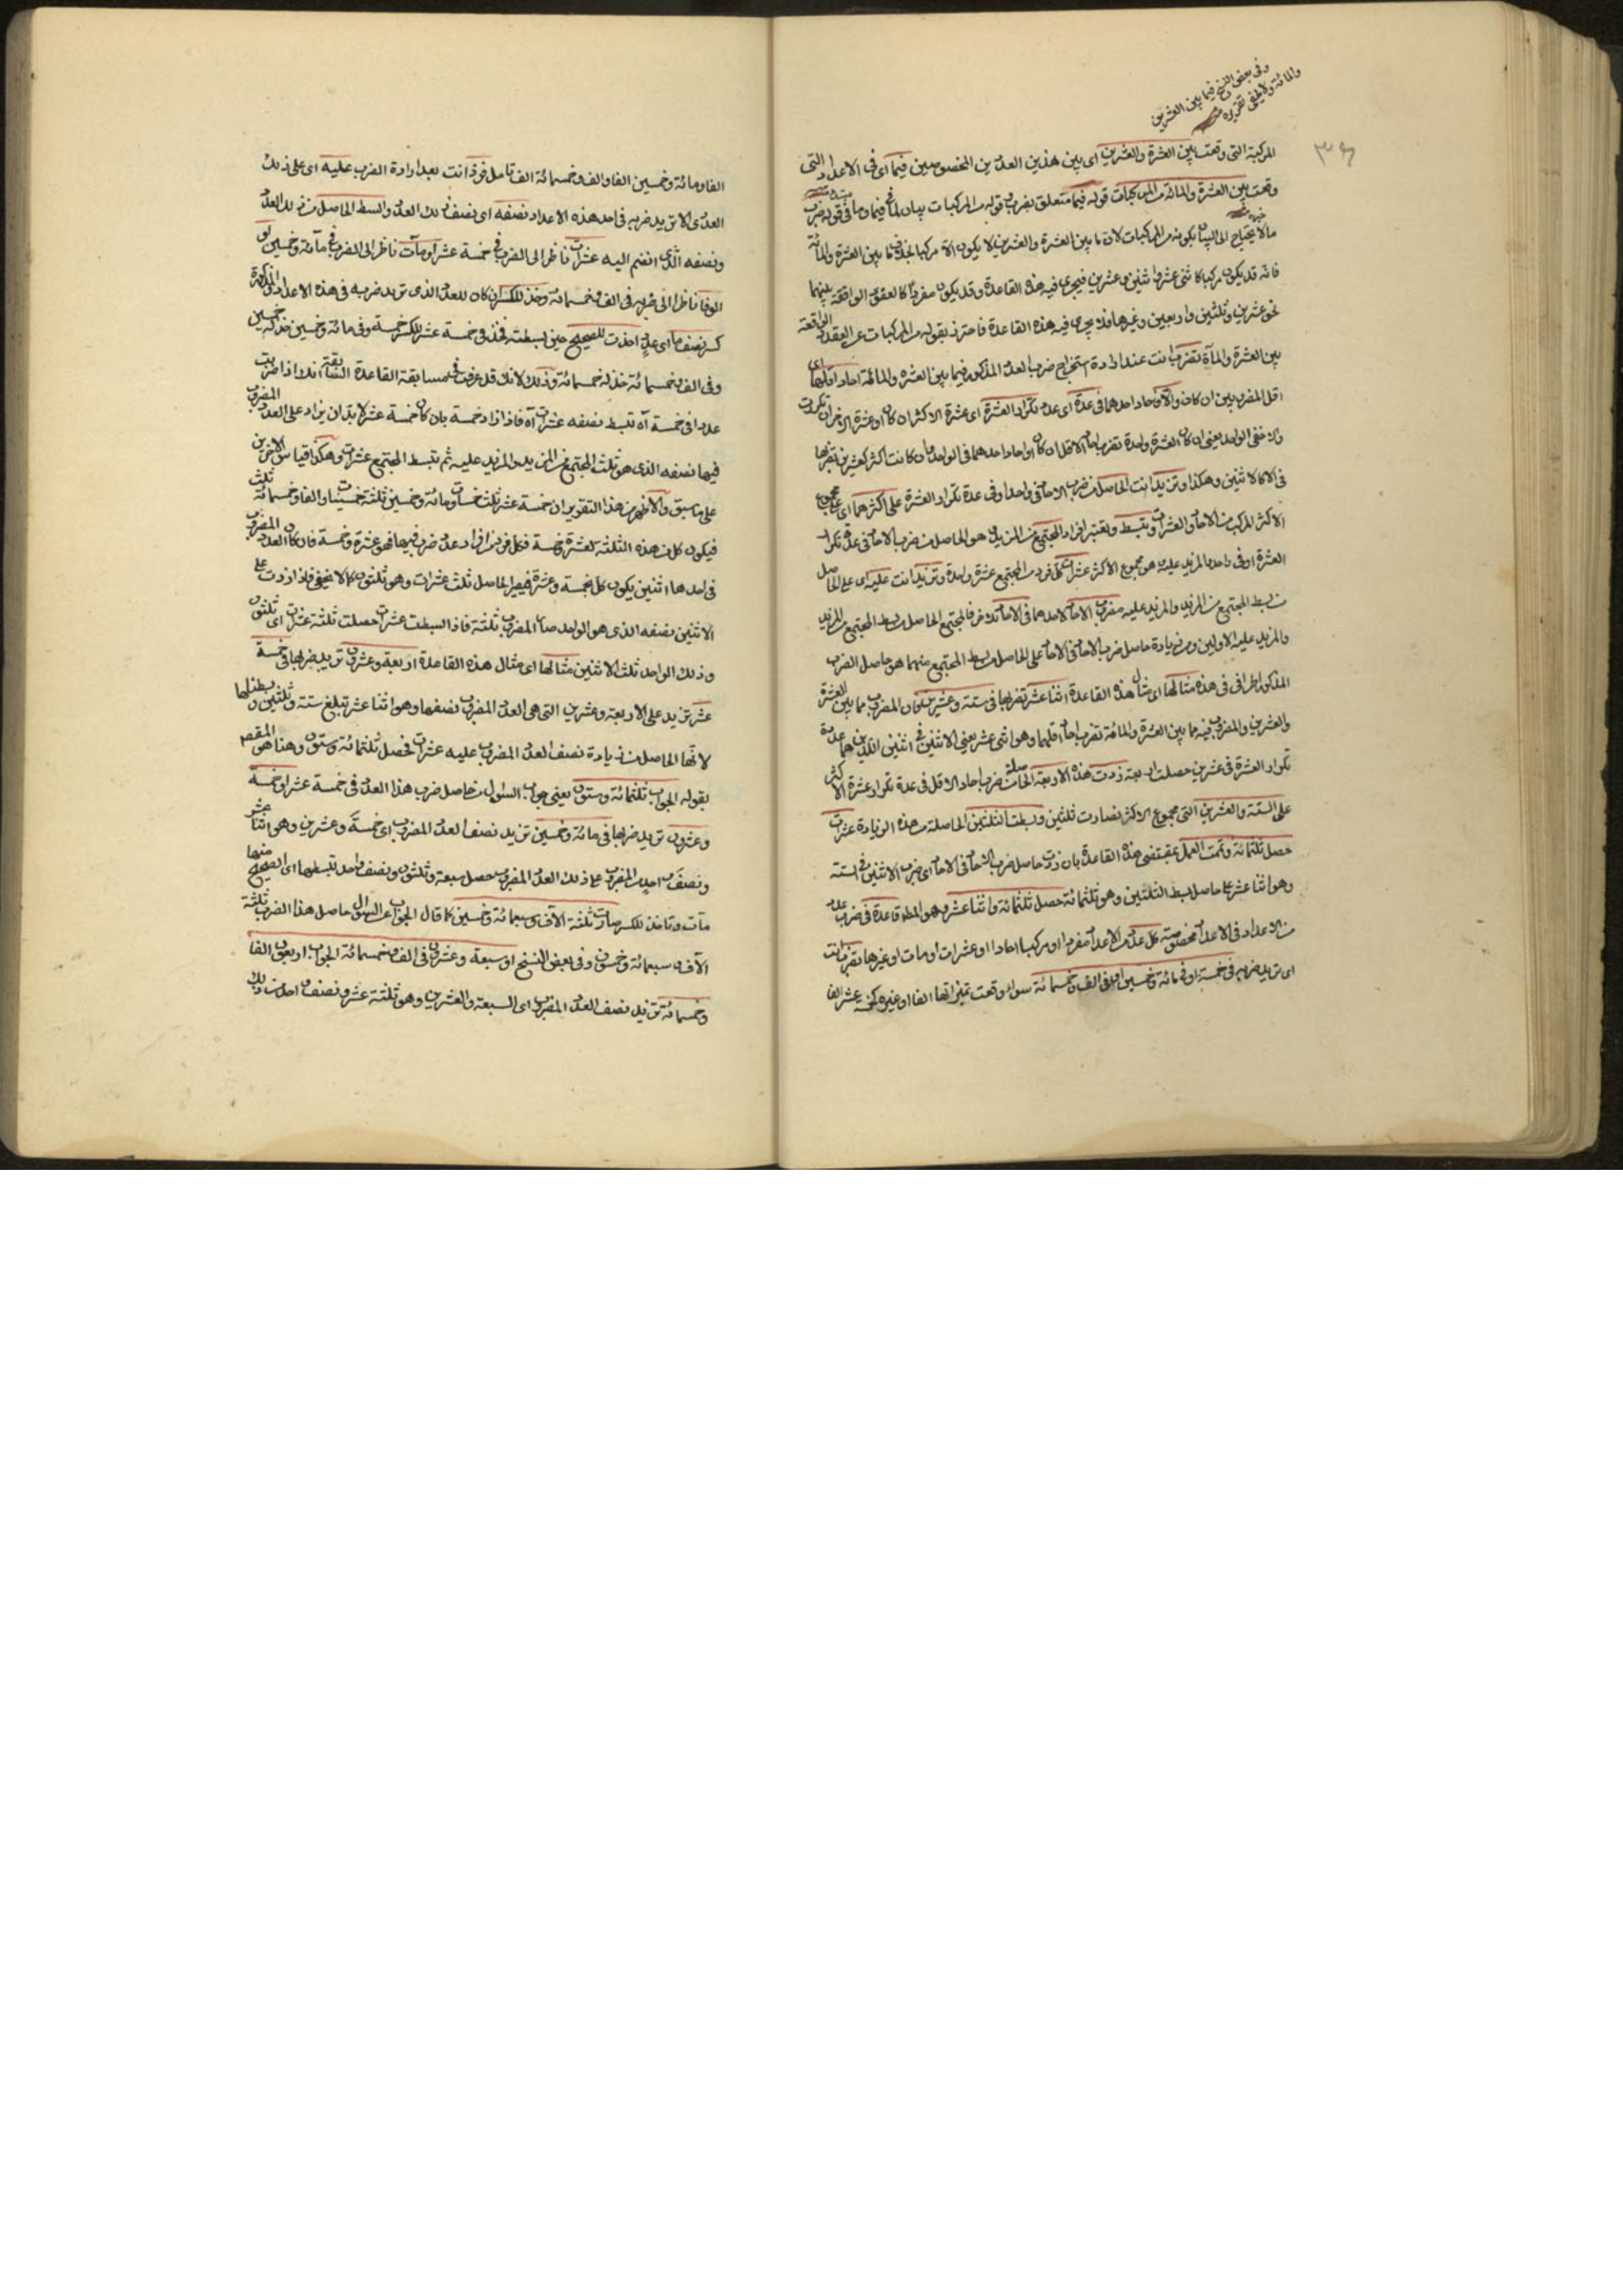 وفى بعض النسخ فيما بين العشرين
والمائة ولا يخفى تقريره
٣٤
المركبة التى وقعت بين العشرة والعشرين اى بين هذين العددين المخصوصين فيما اى فى الاعداد التى
وقعت بين العشرة والمائة من المركبات قوله فيما متعلق بضرب قوله من المركبات بيان لما فى فيما وما فى قوله ضرب
ما لا يحتاج الى البيان بكونه من المركبات لان ما بين العشرة والعشرين لا يكون الا مركبا بخلاف ما بين العشرة والمائة
فانه قد يكون مركبا كاثنى عشر واثنين وعشرين فيجرى فيه هذه القاعدة وقد يكون مفردا كالعقود الواقعة بينهما
نحو عشرين وثلثين واربعين وغيرها فلا يجرى فيه هذه القاعدة فاحترز بقوله من المركبات عن العقود الواقعة
بين العشرة والمأة تضرب انت عند ارادة استخراج ضرب العدد المذكور فيما بين العشره والمائة احاد اقلهما اى
اقل المضروبين ان كان والا فاحاد احدهما فى عدة اى عدد تكرار العشرة اى عشرة الاكثر ان كان او عشرة الاخر ان تكررت
والا ففى الواحد يعنى ان كان العشرة واحدة تضرب احاد الاقل ان كان او احاد احدهما فى الواحد وان كانت اكثر كعشرين تضربها
فى الاثنين وهكذا وتزيد انت الحاصل من ضرب الاحاد فى واحد او فى عدة تكرار العشرة على اكثرهما اى على مجموع
الاكثر المركب من الاحاد والعشرات وتبسط وتعتبر افراد المجتمع من المزيد الذى هو الحاصل من ضرب الاحاد فى عدة تكرار
العشرة او فى واحد والمزيد عليه الذى هو مجموع الاكثر عشرات كل فرد من المجتمع عشرة واحدة وتزيد انت عليه اى على الحاصل
من بسط المجتمع من المزيد والمزيد عليه مضروب الاحاد لاحدهما فى الاحاد للاخر فالمجتمع الحاصل من بسط المجتمع من المزيد
والمزيد عليه الاولين ومن زيادة حاصل ضرب الاحاد فى الاحاد على الحاصل من بسط المجتمع منهما هو حاصل الضرب
المذكور مثالها اى مثال هذه القاعدة اثنا عشر تضربها فى ستة وعشرين لكون المضروب مما بين العشرة
والعشرين والمضروب فيه مما بين العشرة والمائة تضرب احاد اقلهما وهو اثنى عشر يعنى الاثنين فى اثنين اللذين هما عدة
تكرار العشرة فى عشرين حصلت اربعة زدت هذه الاربعة الحاصلة من ضرب احاد الاقل فى عدة تكرار عشرة الاكثر
على الستة والعشرين التى مجموع الاكثر فصارت ثلثين وبسطت الثلثين الحاصلة من هذه الزيادة عشرات
حصل ثلثمائة وتممت العمل بمقتضى هذه القاعدة بان زدت حاصل ضرب الاحاد فى الاحاد اى ضرب الاثنين فى الستة
وهو اثنا عشر على حاصل بسط الثلثين وهو ثلثمائة حصل ثلثمائة واثنا عشر وهو المطلوب قاعدة فى ضرب عدد
من الاعداد فى الاعداد مخصوصة كل عدد من الاعداد مفردا او مركبا احادا او عشرات او مات او غيرها تضرب انت
اى تريد ضربه فى خمسة او فى مائة وخمسين او فى الف وخمسمائة سواء وقعت تميزاتها الفا او غيره كخمسة عشر الف
الفا ومائة وخمسين الفا والف وخمسمائة الف تامل فزد انت بعد ارادة الضرب عليه اى على ذلك
العدد الذى تريد ضربه فى احد هذه الاعداد نصفه اى نصف ذلك العدد وابسط الحاصل من ذلك العدد
ونصفه الذى انضم اليه عشرات ناظر الى الضرب فى خمسة عشر او مآت ناظر الى الضرب فى مآئة وخمسين او
الوفا ناظر الى ضربه فى الف وخمسمائة وخذ للكسر ان كان للعدد الذى تريد ضربه فى هذه الاعداد المذكورة
كسر نصف ما اى عدد اخذت للصحيح حين بسطته فخذ فى خمسة عشر للكسر خمسة وفى مائة وخمسين خذ له خمسين
وفى الف وخمسمائة خذ له خمسمائة وذلك لانك قد عرفت فيما سابقة القاعدة السابقة انك اذا ضربت
عددا فى خمسة آه تبسط نصفه عشرات آه فاذا زاد خمسة بان كان خمسة عشر لا بد ان يزاد على العدد المضروب
فيها نصفه الذى هو ثلث المجتمع من المزيد والمزيد عليه ثم تبسط المجتمع عشرات وهكذا قياس الاخرين
على ما سبق والاظهر من هذا التقرير ان خمسة عشر ثلث خمسات ومائة وخمسين ثلثة خمسينات والفا وخمسمائة ثلث
فيكون كل من هذه الثلثة لعشرة وخمسة فكل فرد من افراد عدد ضرب فيها فهو عشرة وخمسة فان كان العدد المضروب
فى احدها اثنين يكون كل خمسة وعشرة فيصير الحاصل ثلث عشرات وهو ثلثون كما لا يخفى فاذا زدت على
الاثنين نصفه الذى هو الواحد صار المضروب ثلثة فاذا بسطت عشرات حصلت ثلثة عشرات اى ثلثون
وذلك الواحد ثلث الاثنين مثالها اى مثال هذه القاعدة اربعة وعشرون تريد ضربها فى خمسة
عشر تزيد على الاربعة وعشرين التى هى العدد المضروب نصفها وهو اثنا عشر تبلغ ستة وثلثين وبسطناها
لانها الحاصل من زيادة نصف العدد المضروب عليه عشرات فحصل ثلثمائة وستون وهذا هو المقصود
بقوله الجواب ثلثمائة وستون يعنى جواب السؤال من حاصل ضرب هذا العدد فى خمسة عشر او خمسة
وعشرون تريد ضربها فى مائة وخمسين تزيد نصف العدد المضروب اى خمسة وعشرين وهو اثنا عشر
ونصف احد من المضروب على ذلك العدد المضروب حصل سبعة وثلثون ونصف واحد تبسطها اى الصحيح منها
مآت وتاخذ للكسر صارت ثلثة الاف وسبعمائة وخمسين كما قال الجواب عن السؤال حاصل هذا الضرب ثلثة
الآف وسبعمائة وخمسون وفى بعض النسخ او سبعة وعشرون فى الف وخمسمائة الجواب اربعون الفا
وخمسمائة تزيد نصف العدد المضروب اى السبعة والعشرين وهو ثلثة عشر ونصف احد من ذلك